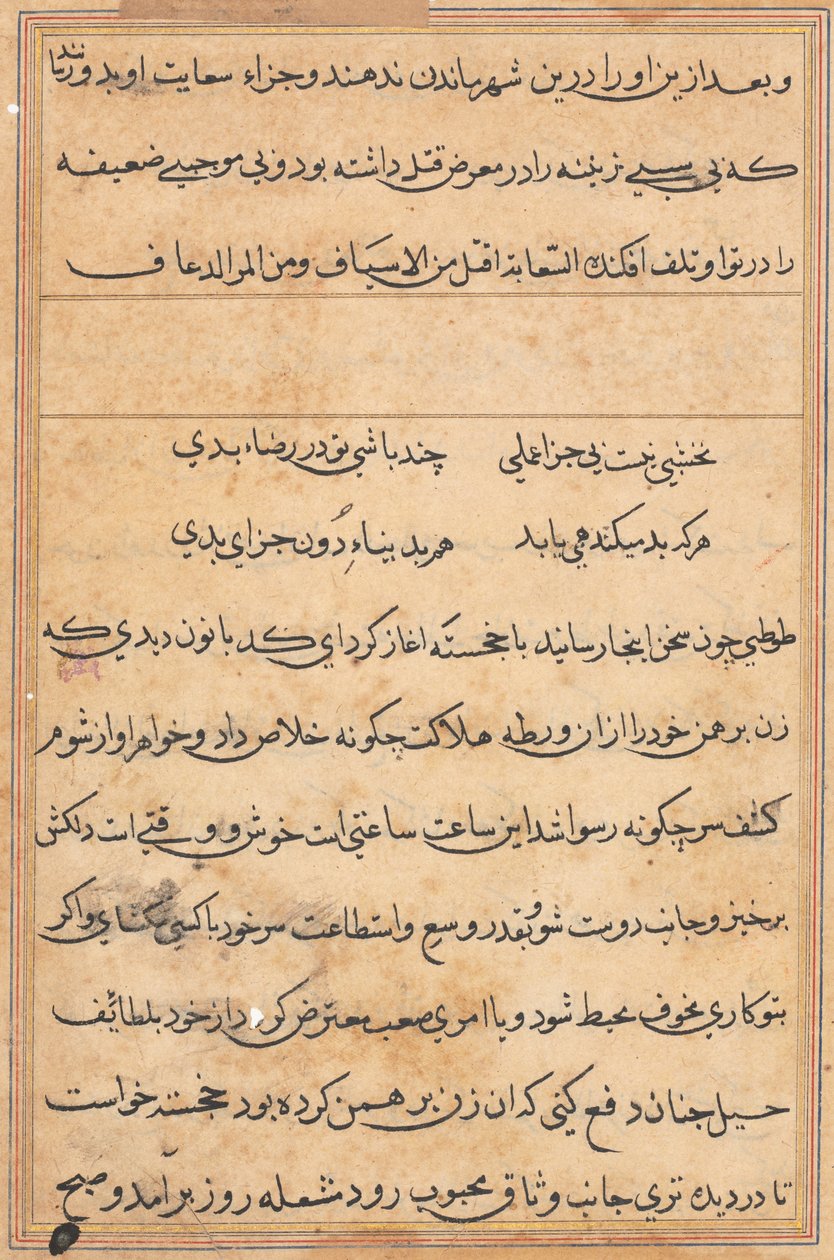 و بعد ازین او را درین شهر ماندن ندهند و جزاء سعایت او بدو رسانند
که بی سببی زینه را در معرض قتل داشته بود و بی موجبی ضعیفه
را در توا و تلف افکنده السّعایة اقتل من الاسیاف و من المر الدعاف
نخشبی نیست بی جزا عملی چند باشی تو در رضاء بدی
هر که بد میکند همی یابد هم بد بیناءِ دُون جزای بدی
طوطی چون سخن اینجا رسانید با خجسته اغاز کرد ای کد بانون دیدی که
زن برهمن خود را ازان ورطه هلاکت چکونه خلاص داد و خواهر او از شوم
کشف سر چکونه رسوا شد این ساعت ساعتی است خوش و وقتی است دلکش
برخیز و جانب دوست شو و بقدر وسع و استطاعت سر خود با کسی مکشای و اکر
بتو کاری مخوف محیط شود و یا امری صعب معترض کردد از خود بلطائف
حیل چنان دفع کنی که ان زن برهمن کرده بود خجسته خواست
تا در دیده تری جانب وثاق محبوب رود مشعله روز برآمد و صبح